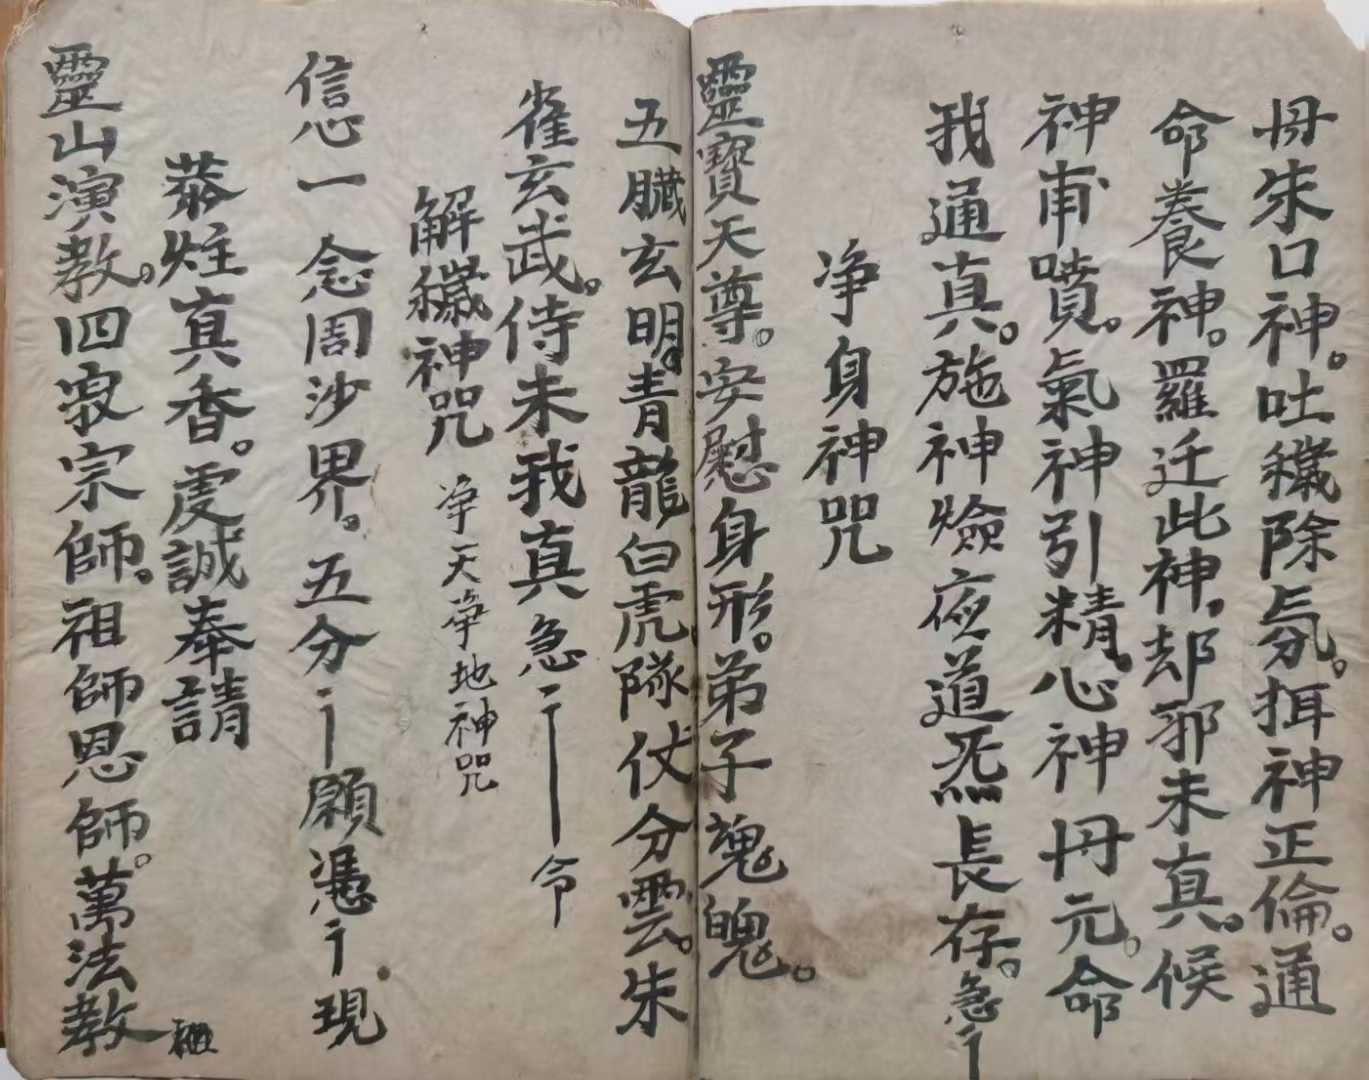 丹朱口神。吐穢除氛。揖神正倫。通
命養神。羅迁此神。却邪未真。候
神甫噴。氣神引精。心神丹元。命
我通真。施神燄夜道炁長存。急〻
净身神咒
靈寶天尊。安慰身形。弟子魂魄。
五臟玄明。青龍白虎隊仗分雲。朱
雀玄武。侍未我真急〻令
解穢神咒 净天净地神咒
信心一念周沙界。五分〻願憑〻現
恭炷真香。虔誠奉請
靈山演教。四寂宗師。祖師恩師。萬法教